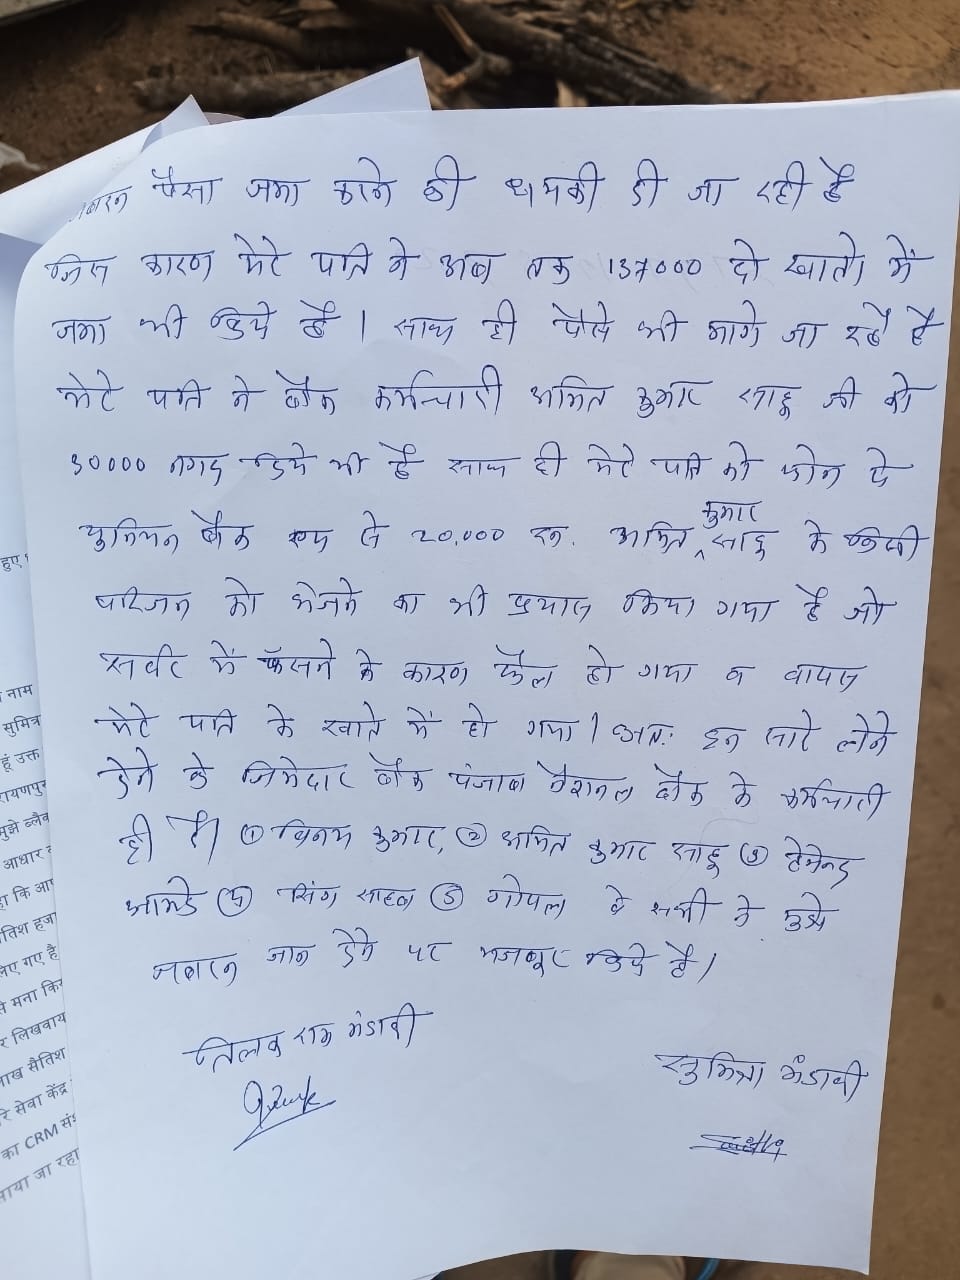 जबरन पैसा जमा करने की धमकी दी जा रही है
जिस कारण मेरे पति ने अब तक 137000 दो खातों में
जमा भी किये है। साथ ही पैसे भी मांगे जा रहे है
मेरे पति ने बैंक कर्मचारी अमित कुमार साहू जी को
30000 नगद दिये भी है साथ ही मेरे पति को फोन पे
युनियन बैंक एप से 20,000 रू. अमित कुमार साहू के किसी
परिजन को भेजने का भी प्रयास किया गया है जो
सर्वर में फॅसने के कारण फैल हो गया व वापस
मेरे पति के खाते में हो गया। अतः इन सारे लेने
देने के जिमेदार बैंक पंजाब नैशनल बैंक के कर्मचारी
ही है। ① विनय कुमार, ② अमित कुमार साहू ③ हेमेन्द्र
④ सिंग साहब ⑤ गोपल ये सभी ने मुझे
जबरन जान देने पर मजबूर किये है।
तिलक राम मंडावी
सुमित्रा मंडावी
हुए
नाम
सुमित्र
हूं उक्त
रायणपुर
मुझे ब्लैक
आधार
हा कि आप
तिश हजा
लिए गए है
से मना किर
र लिखवाय
लाख सैतिश
रि सेवा केंद्र
का CRM संध
माया जा रहा